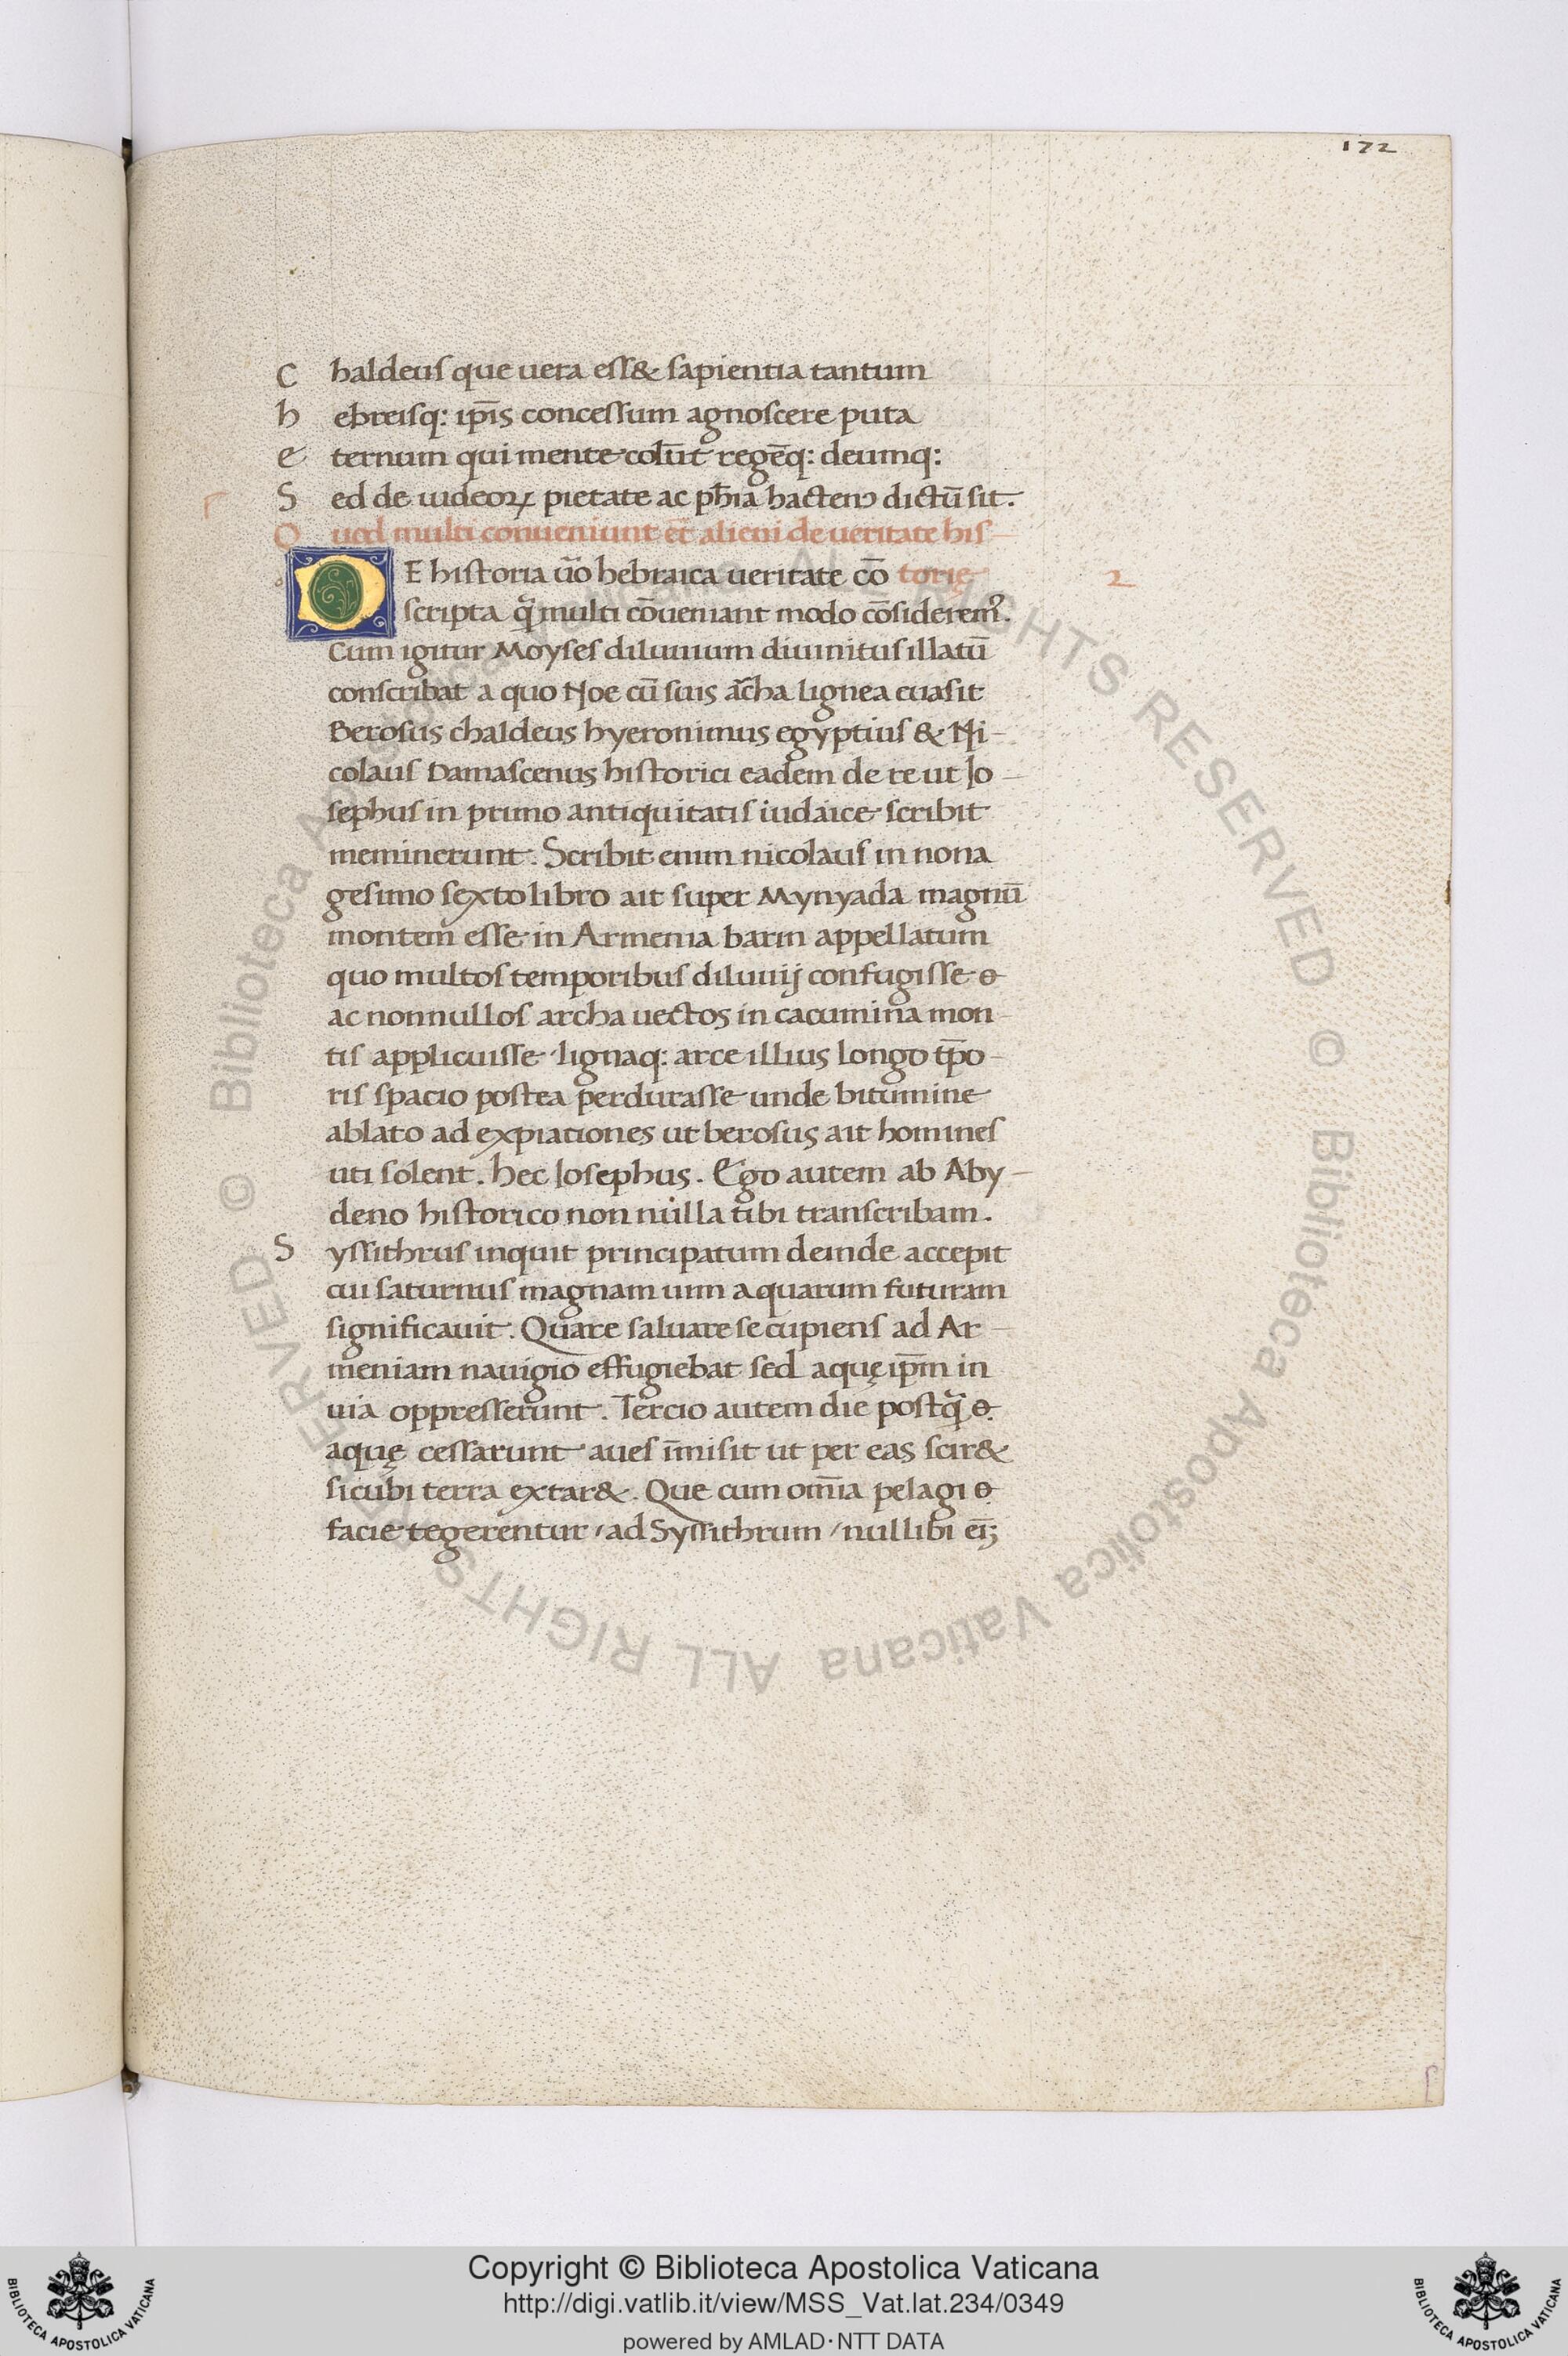 172
Chaldeus que uera ess& sapientia tantum
hebreisq: ip̄is concessum agnoscere puta
eternum qui mente colūt regēq: deumq:
Sed de iudeoꝝ pietate ac ph̄ia hacten⁹ dictū sit.
Quod multi conueniunt et̄ alieni de ueritate his-
DE historia ūo hebraica ueritate cō torię
2
scripta q̄ multi cōueniant modo cōsiderem⁹.
Cum igitur Moyses diluuium diuinitus illatū
conscribat a quo Noe cū suis archa lignea euasit
Berosus chaldeus hyeronimus egyptius & Ni-
colaus Damascenus historici eadem de re ut Jo-
sephus in primo antiquitatis iudaice scribit
meminerunt. Scribit enim nicolaus in nona
gesimo sexto libro ait super Mynyada magnū
montem esse in Armenia barin appellatum
quo multos temporibus diluuij confugisse
ac nonnullos archa uectos in cacumina mon-
tis applicuisse lignaq: arce illius longo tp̄o-
ris spacio postea perdurasse unde bitumine
ablato ad expiationes ut berosus ait homines
uti solent. hec Josephus. Ego autem ab Aby-
deno historico non nulla tibi transcribam.
Syssithrus inquit principatum deinde accepit
cui saturnus magnam uim aquarum futuram
significauit. Quare saluare se cupiens ad Ar-
meniam nauigio effugiebat sed aquę ip̄m in
uia oppresserunt. Tercio autem die postq̄
aquę cessarunt aues īmisit ut per eas scir&
sicubi terra extar&. Que cum om̄ia pelagi
facie tegerentur / ad Syssithrum / nullibi eī;
Copyright © Biblioteca Apostolica Vaticana
http://digi.vatlib.it/view/MSS_Vat.lat.234/0349
powered by AMLAD·NTT DATA
BIBLIOTECA APOSTOLICA VATICANA
BIBLIOTECA APOSTOLICA VATICANA
© Biblioteca Apostolica Vaticana ALL RIGHTS RESERVED © Biblioteca Apostolica Vaticana ALL RIGHTS RESERVED